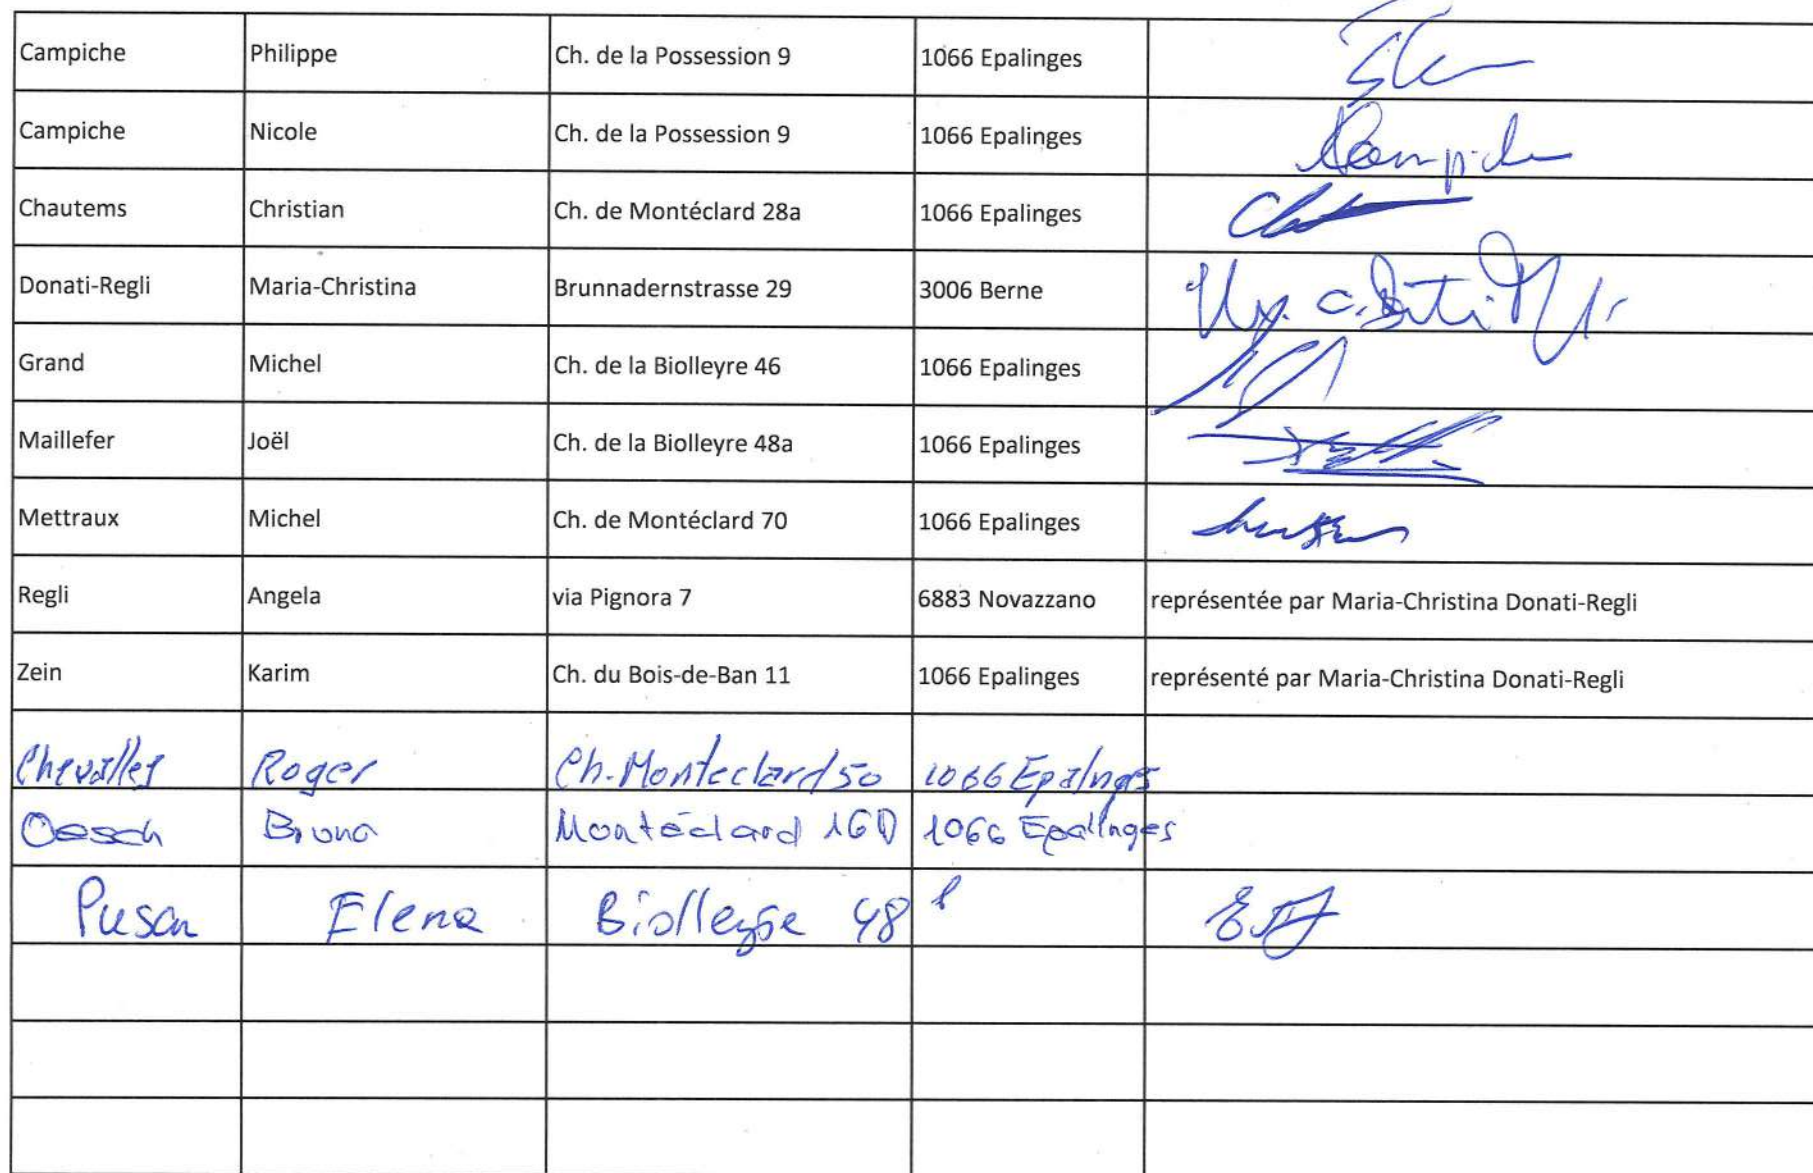 Campiche Philippe Ch. de la Possession 9 1066 Epalinges
Campiche Nicole Ch. de la Possession 9 1066 Epalinges
Chautems Christian Ch. de Montéclard 28a 1066 Epalinges
Donati-Regli Maria-Christina Brunnadernstrasse 29 3006 Berne
Grand Michel Ch. de la Biolleyre 46 1066 Epalinges
Maillefer Joël Ch. de la Biolleyre 48a 1066 Epalinges
Mettraux Michel Ch. de Montéclard 70 1066 Epalinges
Regli Angela via Pignora 7 6883 Novazzano représentée par Maria-Christina Donati-Regli
Zein Karim Ch. du Bois-de-Ban 11 1066 Epalinges représenté par Maria-Christina Donati-Regli
Roger Ch. Monteclard 50 1066 Epalinges
Oesch Bruno Montéclard 16D 1066 Epalinges
Elena Biolleyre 48